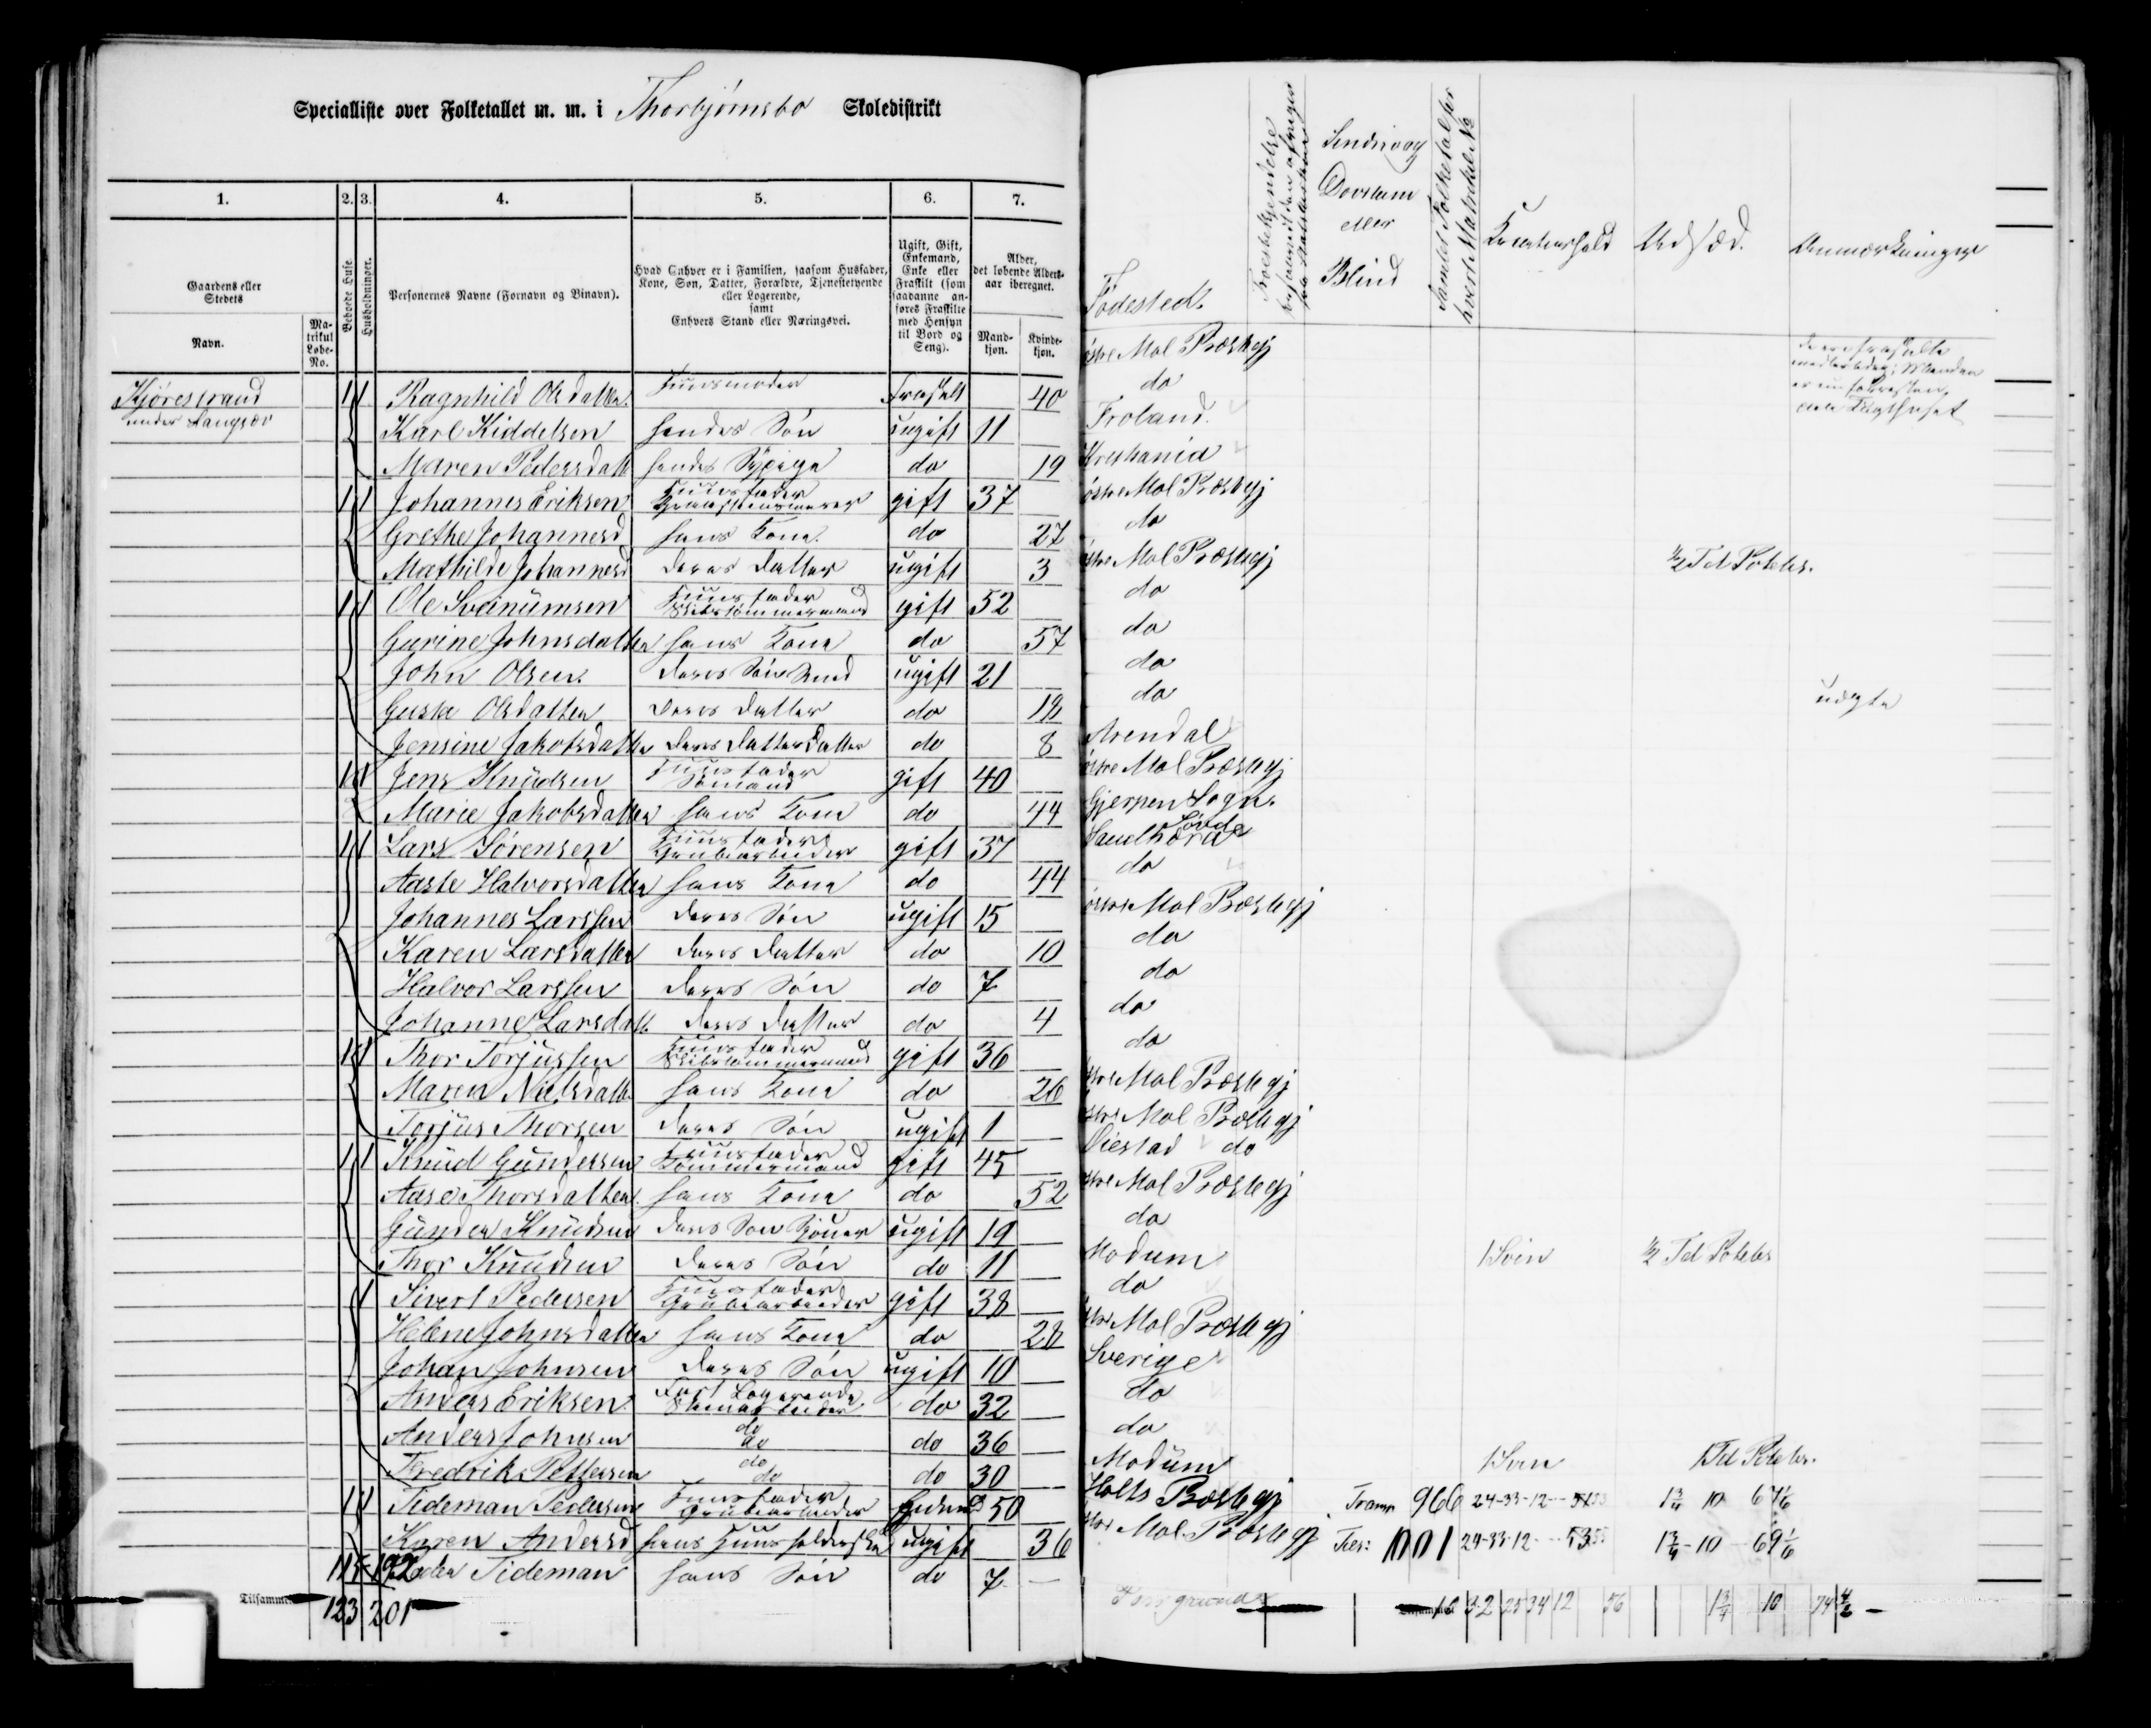 Specialliste over Folketallet m. m. i Thorbjørnsbo Skoledistrikt
1. 2. 3. 4. 5. 6. 7.
Gaardens eller Stedets
Navn.
Matrikul Løbe-No.
Beboede Huse.
Husholdninger.
Personernes Navne (Fornavn og Binavn).
Hvad Enhver er i Familien, saasom Husfader, Kone, Søn, Datter, Forældre, Tjenestetyende eller Logerende, samt Enhvers Stand eller Næringsvei.
Ugift, Gift, Enkemand, Enke eller Fraskilt (som saadanne anføres Fraskilte med Hensyn til Bord og Seng).
Alder, det løbende Aldersaar iberegnet.
Mandkjøn. Kvindekjøn.
Fødested.
Sindssvag Døvstum eller Blind
Samlet Folketal for hvert Matrikul No
Kreaturhold Udsæd. Anmærkninger
Kjørestrand under Langsæv
1 1 Ragnhild Olsdatter Huusmoder fraskilt 40
Karl Kiddelsen hendes Søn ugift 11
Maren Pedersdatt hendes Sypige do 19
1 1 Johannes Eriksen Huusfader gift 37
Grethe Johannesd hans Kone do 27
Mathilde Johannesd deres Datter ugift 3
1 1 Ole Svenumsen Huusfader Skibstømmermand gift 52
Gurine Johnsdatter hans Kone do 57
John Olsen deres Søn Smed ugift 21
Olsdatter deres Datter do 18
Jensine Jakobsdatter deres Datterdatter do 8
1 1 Jens Knudsen Huusfader Sømand gift 40
Marie Jakobsdatter hans Kone do 44
1 1 Lars Sørensen Huusfader Grubearbeider gift 37
Aaste Halvorsdatter hans Kone do 44
Johannes Larssen deres Søn ugift 15
Karen Larsdatter deres Datter do 10
Halvor Larssen deres Søn do 7
Johanne Larsdatt deres Datter do 4
1 1 Thor Torjussen Huusfader Skibstømmermand gift 36
Maren Nielsdatt hans Kone do 26
Torjus Thorsen deres Søn ugift 1
1 1 Knud Gundersen Huusfader Tømmermand gift 45
Aase Thorsdatter hans Kone do 52
Gunder Knudsen deres Søn ugift 19
Thor Knudsen deres Søn do 11
1 1 Sivert Pedersen Huusfader Grubearbeider gift 38
Helene Johnsdatter hans Kone do 28
Johan Johnsen deres Søn ugift 10
Anders Eriksen Logerende do 32
Anders Johnsen do do do 36
Fredrik Pettersen do do do 30
1 1 Tideman Pedersen Huusfader Grubearbeider 50
Karen Andersd hans Huusholderske ugift 36
115 192 Tideman hans Søn do 7
Tilsammen 123 201
østre Mol Præstegj
do
Froland.
Kristiania
østre Mol Præstegj
do
østre Mol Præstegj ½ Td Poteter.
do
do
do
do
Arendal
østre Mol Præstegj
Gjerpen Sogn.
do
østre Mol Præstegj
do
do
do
do
østre Mol Præstegj
østre Mol Præstegj
Øiestad do
østre Mol Præstegj
do
Modum 1 Svin ½ Td Poteter
do
østre Mol Præstegj
Sverige
do
do
Modum 1 Svin 1 Td Poteter.
Holts Præstegj 966 24-33-12
østre Mol Præstegj 1001 24-33-12 53